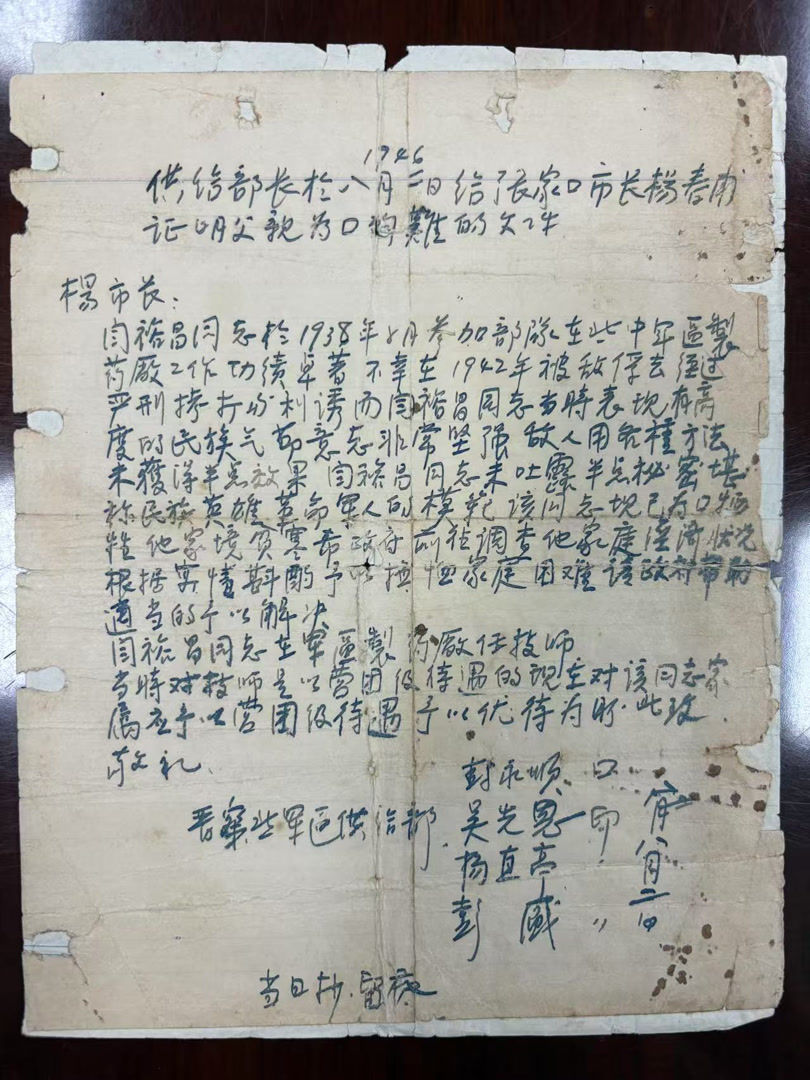 1946
供给部长於八月二日给张家口市长楊春甫
证明父親为口殉難的文件
楊市长：
闫裕昌同志於1938年8月参加部隊在此中军區製
药厰工作功绩卓著不幸在1942年被敌俘去经过
严刑拷打与利诱而闫裕昌同志当時表现有高
度的民族气节意志非常坚强敌人用各種方法
未獲得半点效果闫裕昌同志未吐露半点秘密堪
称民族英雄革命军人的模范该同志现已为口犧
牲他家境贫寒希政府前往调查他家庭经济状况
根据实情斟酌予以撫恤家庭困难该政府帮助
適当的予以解决
闫裕昌同志在军區製药厰任技师
当時对技师是以营团级待遇的现在对该同志家
属应予以营团级待遇予以优待为盼 此致
敬礼
晋察此军区供给部
封永顺 口
吴先恩 印
楊直亭 〃
彭盛 〃
八月二日
当日抄 留底